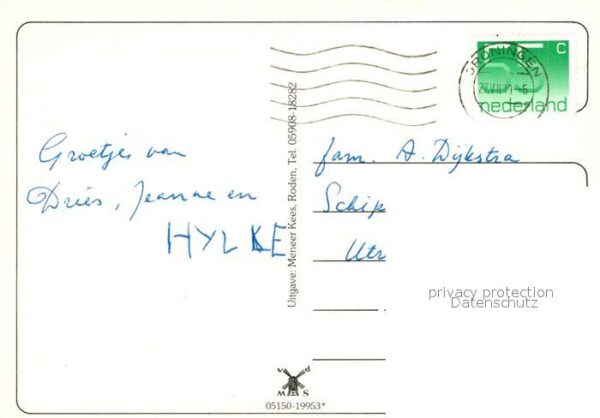 C
GRONINGEN
nederland
Groetjes van
Dries, Jeanne en
HYLKE
Uitgave: Meneer Kees, Roden, Tel. 05908-18282
fam. A. Dijkstra
Schip
Utr
privacy protection
Datenschutz
v d
M S
05150-19953*